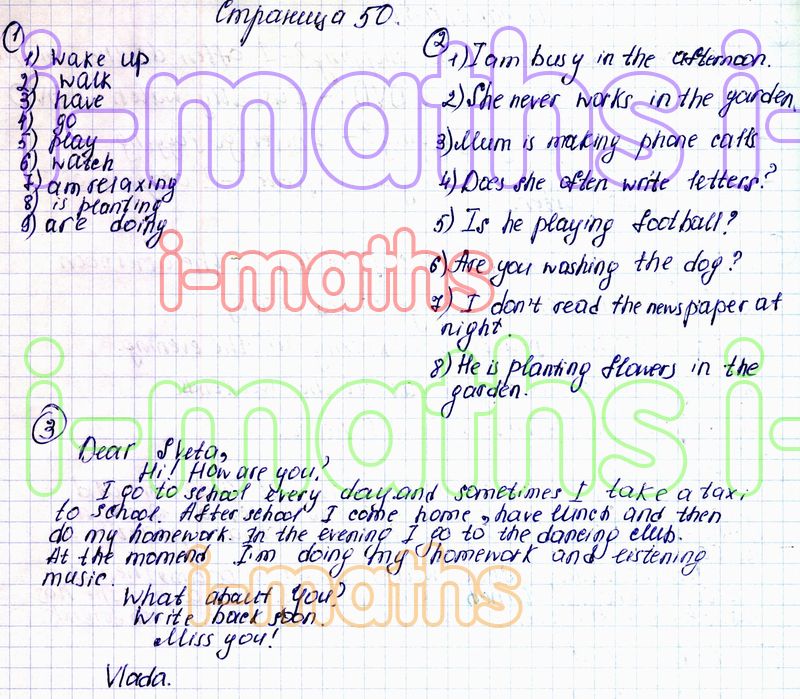 Страница 50.
1
1) wake up
2) walk
3) have
4) go
5) play
6) watch
7) am relaxing
8) is planting
9) are doing
2
1) I am busy in the afternoon.
2) She never works in the garden.
3) Mum is making phone calls
4) Does she often write letters?
5) Is he playing football?
6) Are you washing the dog?
7) I don't read the newspaper at
night.
8) He is planting flowers in the
garden.
3
Dear Sveta,
Hi! How are you?
I go to school every day and sometimes I take a taxi
to school. After school I come home, have lunch and then
do my homework. In the evening I go to the dancing club.
At the momend I'm doing my homework and listening
music.
What about you?
Write back soon.
Miss you!
Vlada.
i-maths i-
i-maths
i-maths i-
i-maths